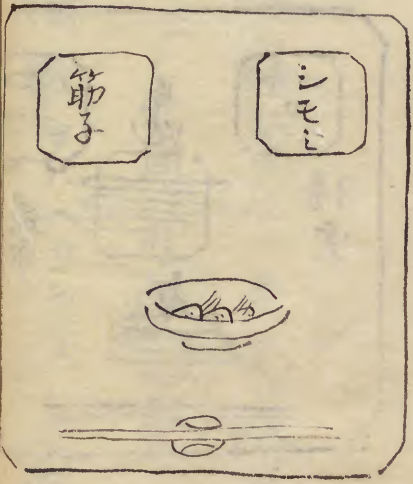 シモミ
筋子